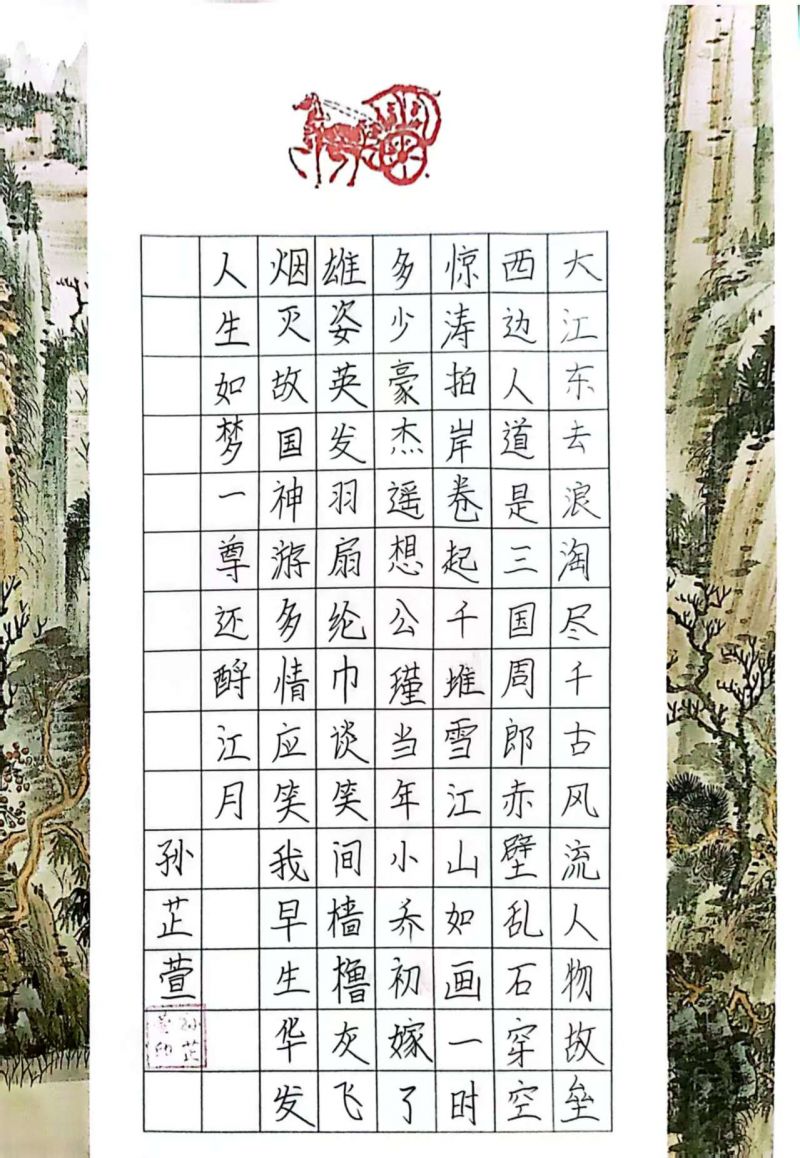 大江东去浪淘尽千古风流人物故垒
西边人道是三国周郎赤壁乱石穿空
惊涛拍岸卷起千堆雪江山如画一时
多少豪杰遥想公瑾当年小乔初嫁了
雄姿英发羽扇纶巾谈笑间樯橹灰飞
烟灭故国神游多情应笑我早生华发
人生如梦一尊还酹江月
孙芷萱
孙芷
萱印